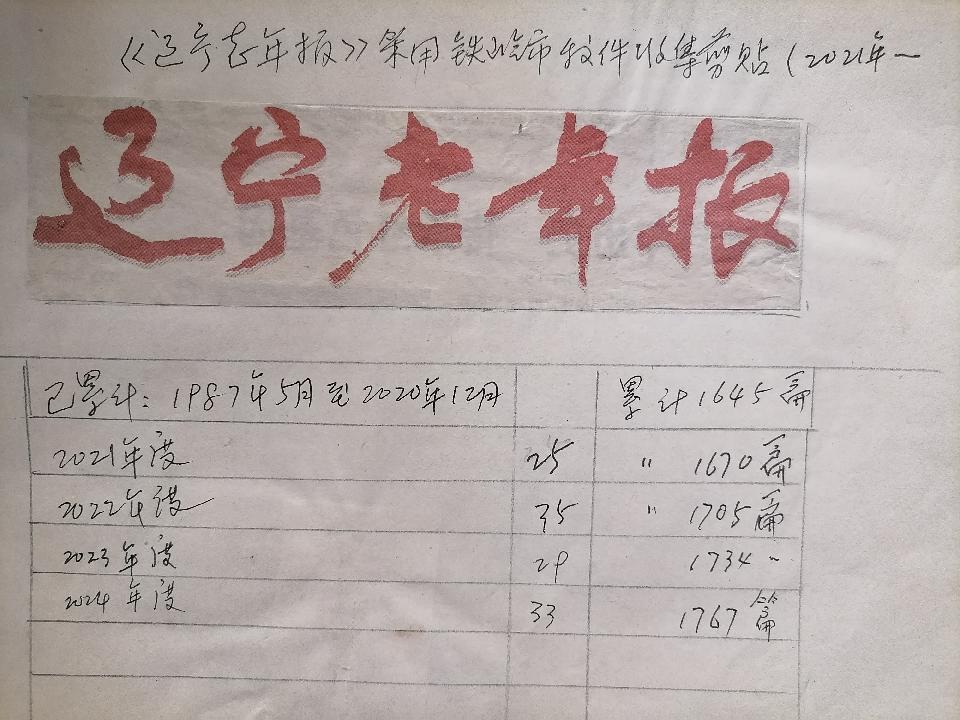 《辽宁老年报》采用铁岭市稿件收集剪贴(2021年—
辽宁老年报
已累计: 1987年5月至2020年12月 累计1645篇
2021年度 25 " 1670篇
2022年度 35 " 1705篇
2023年度 29 1734 〃
2024年度 33 1767篇